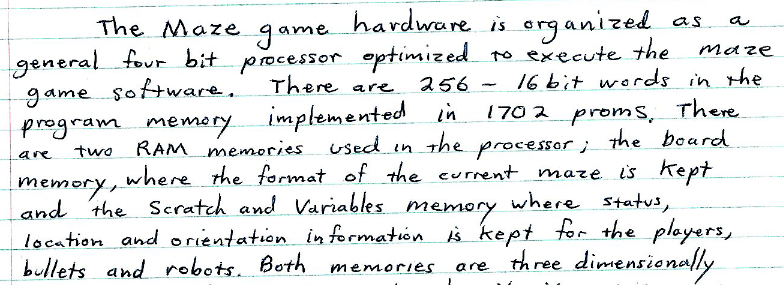 The Maze game hardware is organized as a
general four bit processor optimized to execute the maze
game software. There are 256 - 16 bit words in the
program memory implemented in 1702 proms. There
are two RAM memories used in the processor; the board
memory, where the format of the current maze is kept
and the Scratch and Variables memory where status,
location and orientation information is kept for the players,
bullets and robots. Both memories are three dimensionally